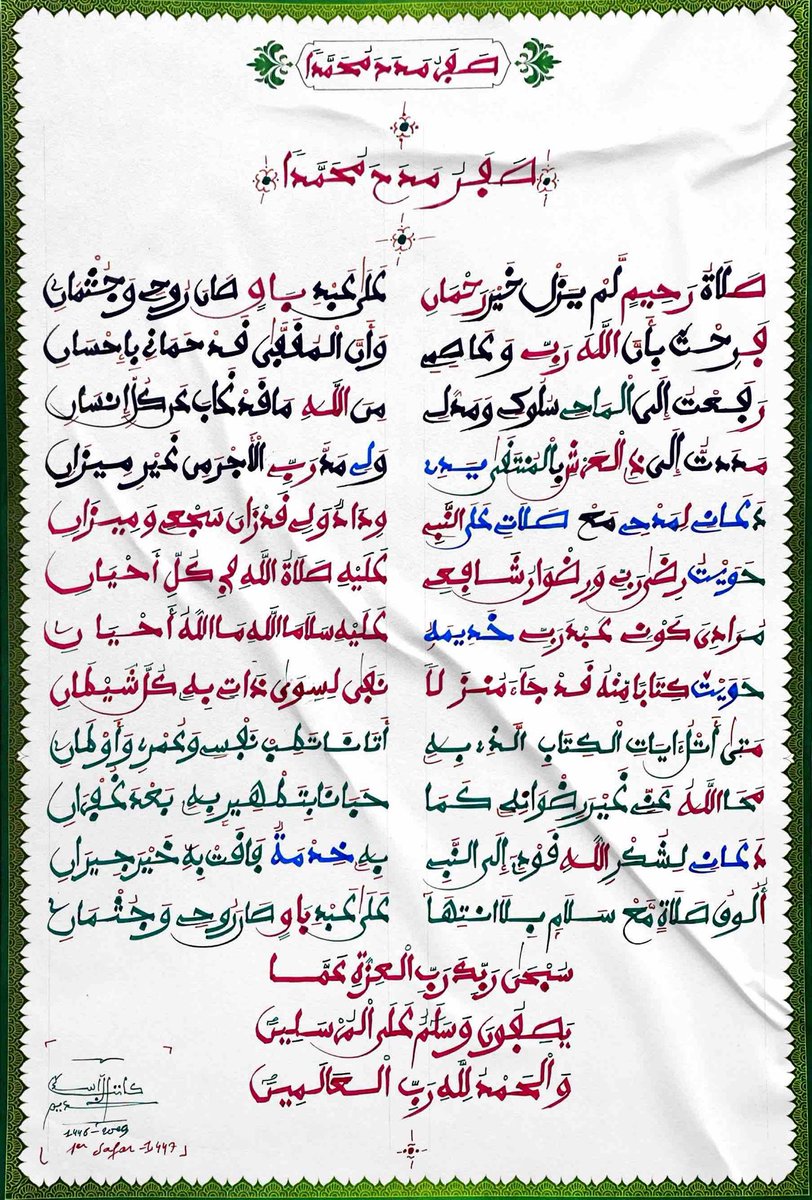 صَفَرٌ مَدَدَ مُحَمَّدًا
صَفَرٌ مَدَدَ مُحَمَّدًا
صَلَاةُ رَحِيمٍ لَّمْ يَزَلْ خَيْرَ رَحْمَانِ عَلَى عَبْدِ بَاقٍ صَانَ رُوحِي وَجُثْمَانِ
فَرِحْتُ بِأَنَّ اللَّهَ رَبِّي وَعَاصِمِي وَأَنَّ الْمُقَفَّى قَدْ حَمَانِي بِإِحْسَانِ
رَفَعْتُ إِلَى الْمَاحِي سُلُوكِي وَمَدَّ لِي مِنَ اللَّهِ مَا قَدْ غَابَ عَن كُلِّ إِنسَانِ
مَدَدتُّ إِلَى ذِي الْعَرْشِ بِالْمُنتَقَى يَدِي وَلِي مَدَّ رَبِّي الْأَجْرَ مِن غَيْرِ مِيزَانِ
دَعَانِي لِمَدْحِي مَعْ صَلَاتِي عَلَى النَّبِي وِدَادٌ وَلِي قَدْ زَانَ سَجْعِي وَمِيزَانِ
حَوَيْتُ رِضَى رَبِّي وَرِضْوَانَ شَافِعِي عَلَيْهِ صَلَاةُ اللَّهِ فِي كُلِّ أَحْيَانِ
مُرَادِيَ كَوْنِي عَبْدَ رَبِّي خَدِيمَهُ عَلَيْهِ سَلَامَا اللَّهِ مَا اللَّهُ أَحْيَانِ
حَوَيْتُ كِتَابًا مِنْهُ قَدْ جَاءَ مُنزَلَا نَفَى لِسِوَى ذَاتِي بِهِ كُلَّ شَيْطَانِ
مَتَى أَتْلُ ءَايَاتِ الْكِتَابِ الَّذِي بِهِ أَتَانَا تَطِبْ نَفْسِي وَعُمْرِي وَأَوْطَانِ
مَحَا اللَّهُ عَنِّي غَيْرَ رِضْوَانِهِ كَمَا حَبَانَا بِتَطْهِيرٍ بِهِ بَعْدَ غُفْرَانِ
دَعَانِي لِشُكْرِ اللَّهِ قَوْدِي إِلَى النَّبِي بِهِ خِدْمَةٌ فَاقَتْ بِهِ خَيْرَ جِيرَانِ
أُلُوفُ صَلَاةٍ مَّعْ سَلَامٍ بِلَا انتِهَا عَلَى عَبْدِ بَاقٍ صَانَ رُوحِي وَجُثْمَانِ
سُبْحَانَ رَبِّكَ رَبِّ الْعِزَّةِ عَمَّا
يَصِفُونَ وَسَلَامٌ عَلَى الْمُرْسَلِينَ
وَالْحَمْدُ لِلَّهِ رَبِّ الْعَالَمِينَ
1er Safar - 1447